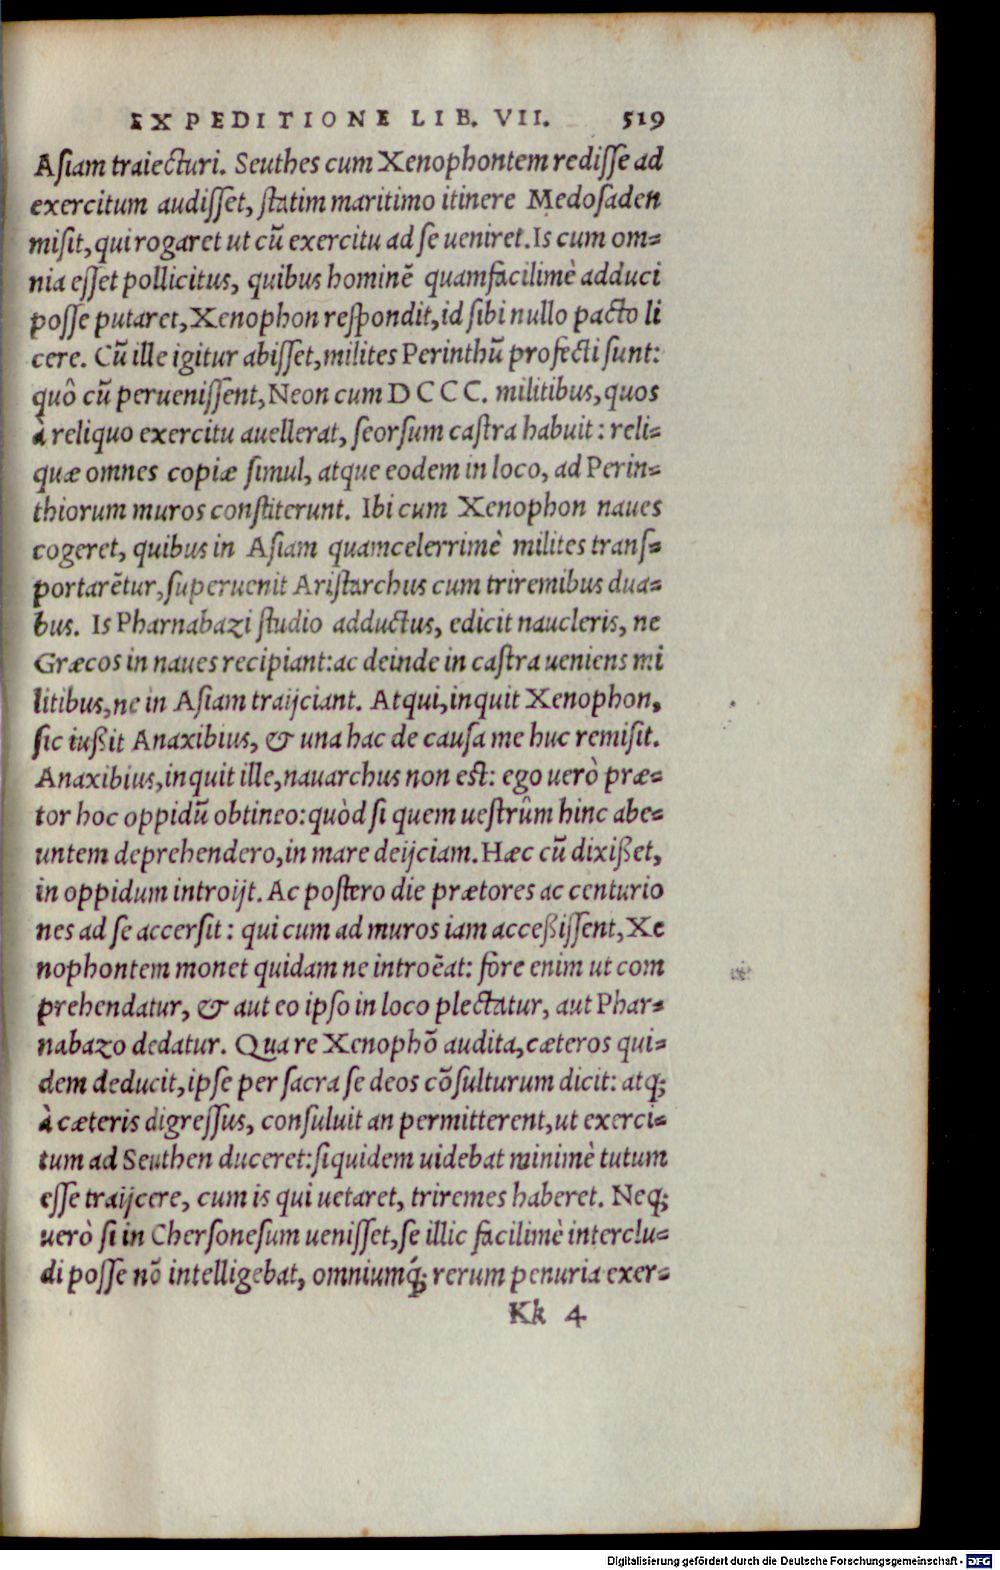 EXPEDITIONE LIB. VII. 519
Aſiam traiecturi. Seuthes cum Xenophontem rediſſe ad
exercitum audiſſet, ſtatim maritimo itinere Medoſaden
miſit, qui rogaret ut cũ exercitu ad ſe ueniret. Is cum om-
nia eſſet pollicitus, quibus hominẽ quamfacilimè adduci
poſſe putaret, Xenophon reſpondit, id ſibi nullo pacto li
cere. Cũ ille igitur abiſſet, milites Perinthũ profecti ſunt:
quô cũ peruenißent, Neon cum DCCC. militibus, quos
à reliquo exercitu auellerat, ſeorſum caſtra habuit: reli-
quæ omnes copiæ ſimul, atque eodem in loco, ad Perin-
thiorum muros conſtiterunt. Ibi cum Xenophon naues
cogeret, quibus in Aſiam quamcelerrimè milites tranſ-
portarẽtur, ſuperuenit Ariſtarchus cum triremibus dua-
bus. Is Pharnabazi ſtudio adductus, edicit naucleris, ne
Græcos in naues recipiant: ac deinde in caſtra ueniens mi
litibus, ne in Aſiam traijciant. Atqui, inquit Xenophon,
ſic iußit Anaxibius, & una hac de cauſa me huc remiſit.
Anaxibius, inquit ille, nauarchus non eſt: ego uerò præ-
tor hoc oppidũ obtineo: quòd ſi quem ueſtrûm hinc abe-
untem deprehendero, in mare deijciam. Hæc cũ dixißet,
in oppidum introijt. Ac poſtero die prætores ac centurio
nes ad ſe accerſit: qui cum ad muros iam acceßiſſent, Xe
nophontem monet quidam ne introëat: fore enim ut com
prehendatur, & aut eo ipſo in loco plectatur, aut Phar-
nabazo dedatur. Qua re Xenophõ audita, cæteros qui-
dem deducit, ipſe per ſacra ſe deos cõſulturum dicit: atq;
à cæteris digreſſus, conſuluit an permitterent, ut exerci-
tum ad Seuthen duceret: ſiquidem uidebat minimè tutum
eſſe traijcere, cum is qui uetaret, triremes haberet. Neq;
uerò ſi in Cherſoneſum ueniſſet, ſe illic facilimè interclu-
di poſſe nõ intelligebat, omniumq́; rerum penuria exer-
Kk 4
Digitalisierung gefördert durch die Deutsche Forschungsgemeinschaft - DFG